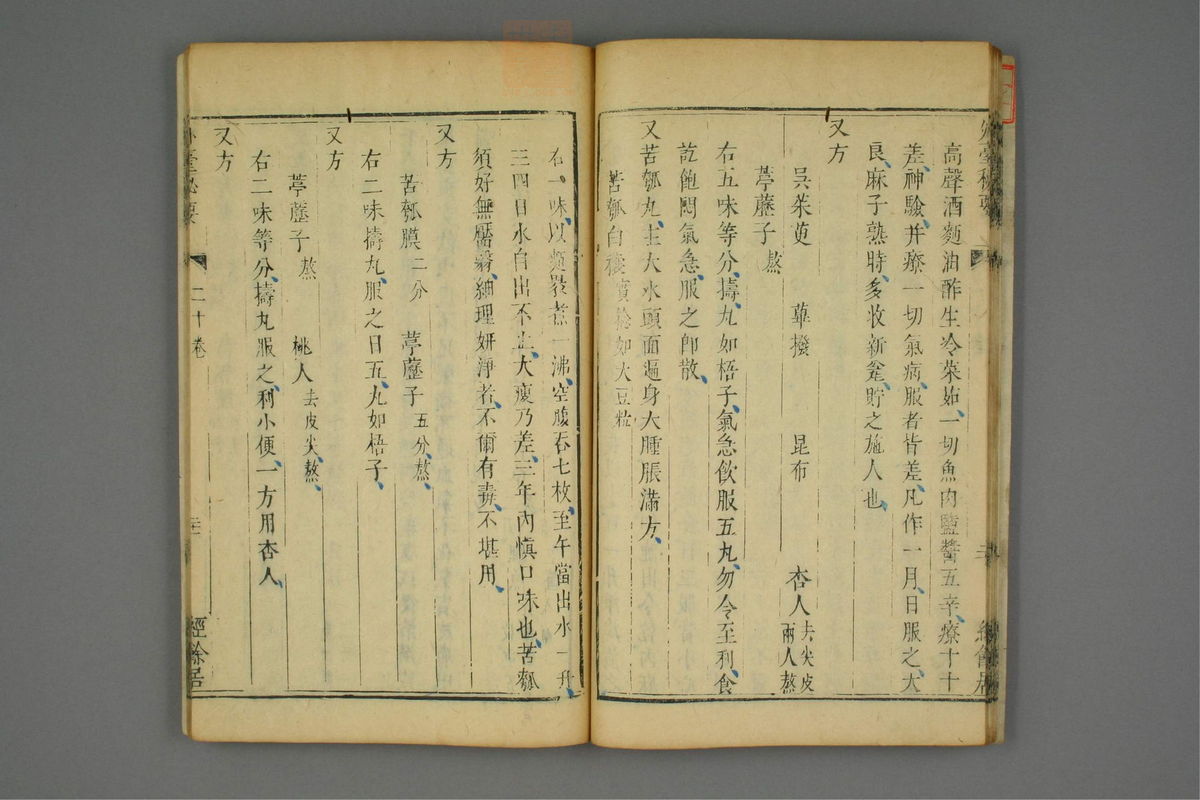 高聲酒麵油酢生冷菜茹一切魚肉鹽醬五辛療十十
差神驗并療一切氣病服者皆差凡作一月日服之大
良麻子熟時多收新瓮貯之施人也
又方
吳茱萸 蓽撥 昆布 杏人去尖皮兩人熬
葶藶子熬
右五味等分擣丸如梧子氣急飲服五丸勿令至利食
訖飽悶氣急服之即散
又苦瓠丸主大水頭面遍身大腫脹滿方
苦瓠白穰實捻如大豆粒
右一味以麵裹煮一沸空腹吞七枚至午當出水一升
三四日水自出不止大瘦乃差三年內慎口味也苦瓠
須好無靨翳細理妍淨者不爾有毒不堪用
又方
苦瓠膜二分 葶藶子五分熬
右二味擣丸服之日五丸如梧子
又方
葶藶子熬 桃人去皮尖熬
右二味等分擣丸服之利小便一方用杏人
又方
外臺秘要 二十卷 經餘居